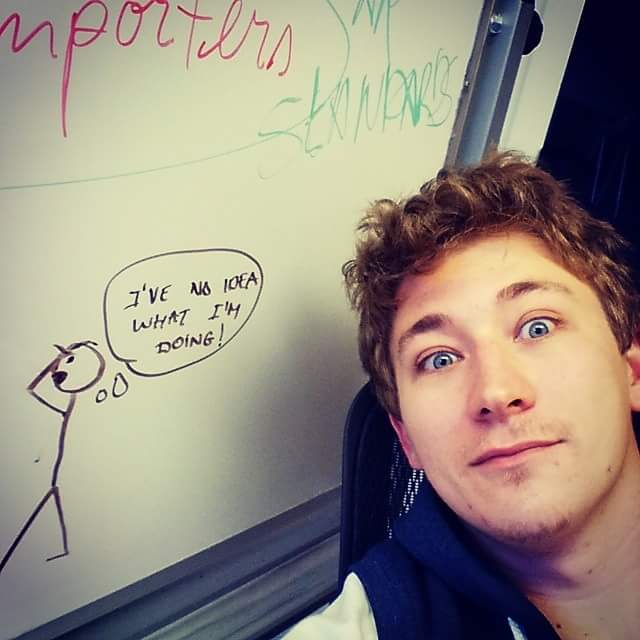 mporters
STANDARDS
I'VE NO IDEA
WHAT I'M
DOING!